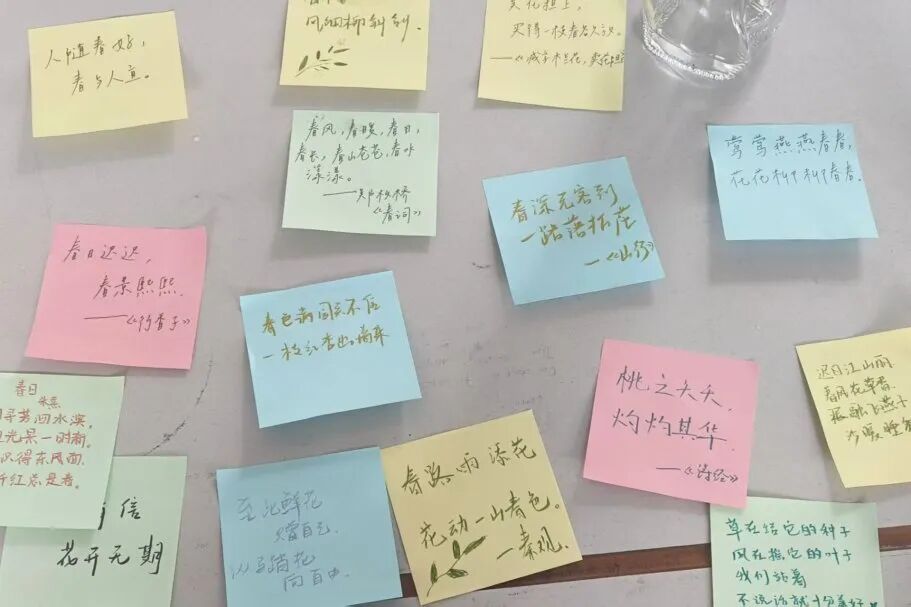 人随春好，
春与人宜。
风细柳斜斜。
卖花担上，
买得一枝春欲放。
——《减字木兰花·卖花担
春风，春暖，春日，
春长，春山苍苍，春水
漾漾。
——郑板桥
《春词》
莺莺燕燕春春，
花花柳柳春春。
春深无客到
一路落松花
——《山行》
春日迟迟，
春景熙熙
——《行香子》
春色满园关不住
一枝红杏出墙来
桃之夭夭，
灼灼其华
——《诗经》
迟日江山丽
春风花草香
泥融飞燕子
沙暖睡
春日
朱熹
日寻芳泗水滨，
光景一时新，
识得东风面
红总是春。
信
花开无期
至此鲜花
赠自己
从马踏花
向自由
春路雨添花
花动一山春色。
——秦观
草在结它的种子
风在摇它的叶子
我们站着
不说话就十分美好